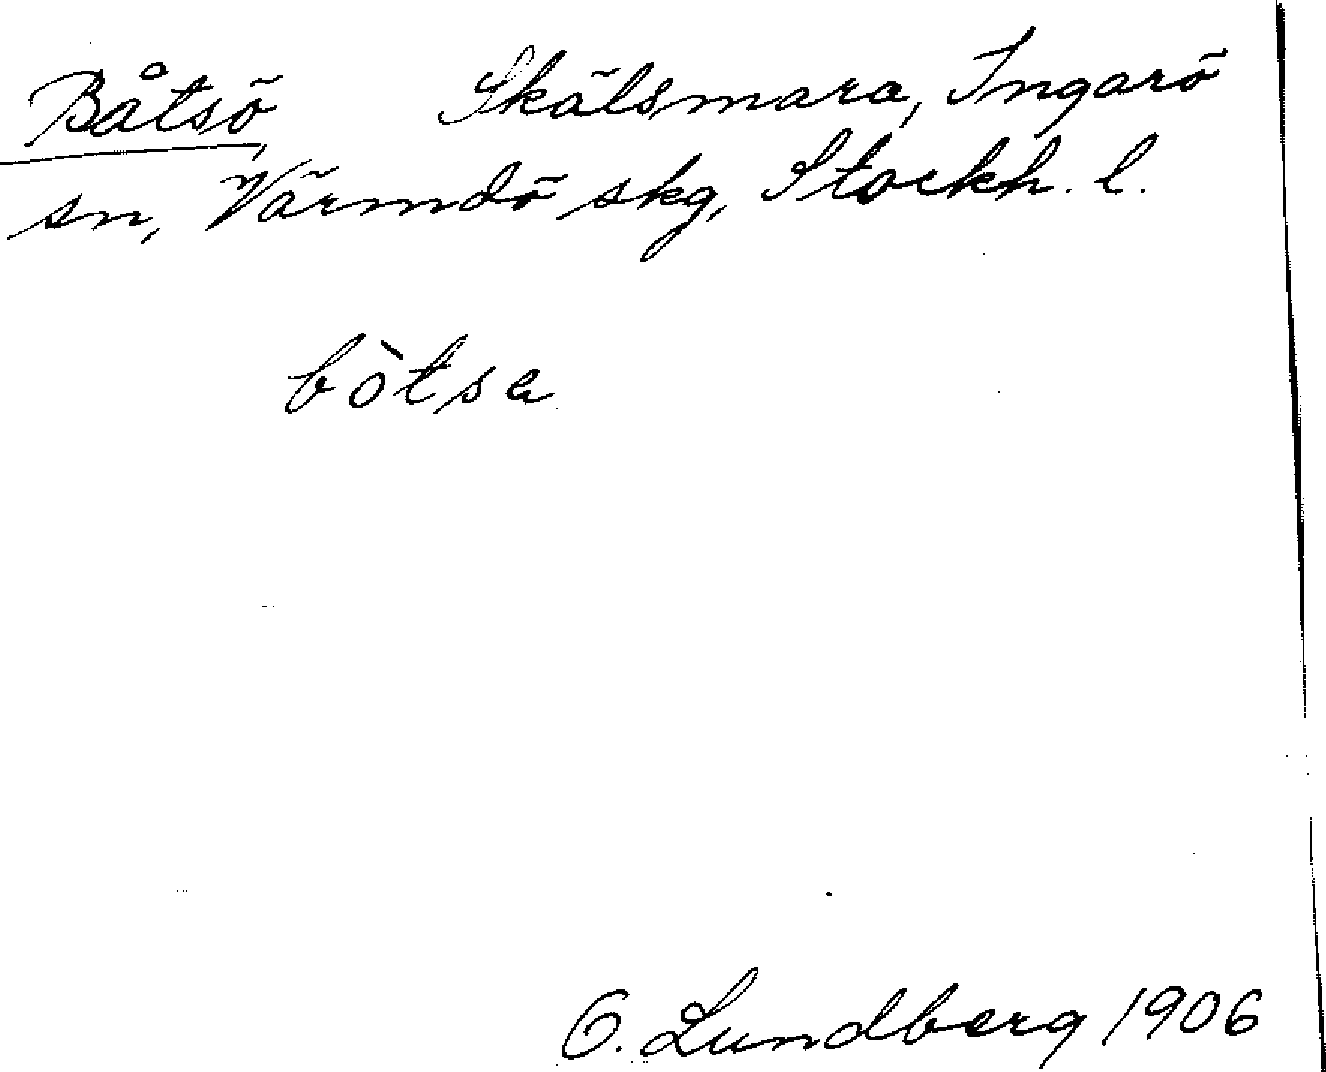 Båtsö, Skälsmara, Ingarö
sn, Värmdö skg, Stockh. l.
bòtsa
O. Lundberg 1906